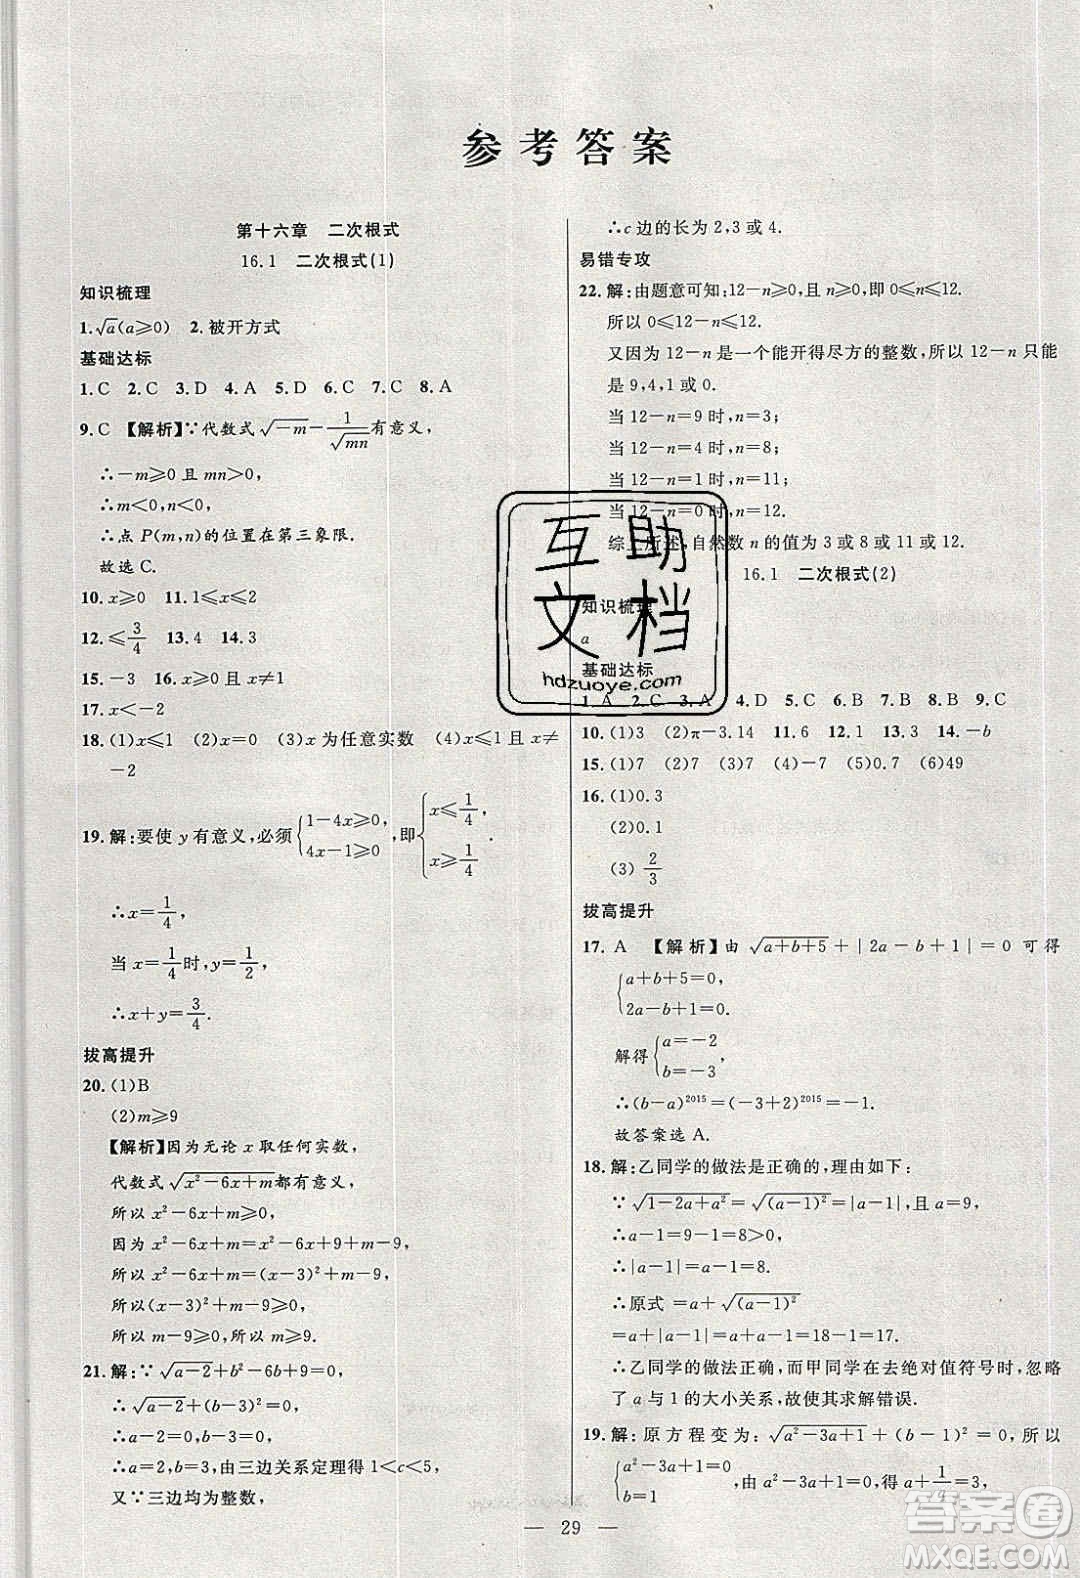 参考答案
第十六章 二次根式
16.1 二次根式(1)
知识梳理
1.√a(a⩾0) 2.被开方式
基础达标
1.C 2.C 3.D 4.A 5.D 6.C 7.C 8.A
9.C 【解析】∵代数式√(-m)-1/√(mn)有意义,
∴-m⩾0且mn>0,
∴m<0,n<0,
∴点P(m,n)的位置在第三象限.
故选C.
10.x⩾0 11.1⩽x⩽2
12.⩽3/4 13.4 14.9
15.-3 16.x⩾0且x≠1
17.x<-2
18.(1)x⩽1 (2)x=0 (3)x为任意实数 (4)x⩽1且x≠
-2
19.解:要使y有意义,必须{1-4x⩾0, 4x-1⩾0,即{x⩽1/4, x⩾1/4.
∴x=1/4
当x=1/4时,y=1/2
∴x+y=3/4.
拔高提升
20.(1)B
(2)m⩾9
【解析】因为无论x取任何实数,
代数式√(x²-6x+m)都有意义,
所以x²-6x+m⩾0,
因为x²-6x+m=x²-6x+9+m-9,
所以x²-6x+m=(x-3)²+m-9,
所以(x-3)²+m-9⩾0,
所以m-9⩾0,所以m⩾9.
21.解:∵√(a-2)+b²-6b+9=0,
∴√(a-2)+(b-3)²=0,
∴a-2=0,b-3=0,
∴a=2,b=3,由三边关系定理得1<c<5,
又∵三边均为整数,
∴c边的长为2,3或4.
易错专攻
22.解:由题意可知:12-n⩾0,且n⩾0,即0⩽n⩽12.
所以0⩽12-n⩽12.
又因为12-n是一个能开得尽方的整数,所以12-n只能
是9,4,1或0.
当12-n=9时,n=3;
当12-n=4时,n=8;
当12-n=1时,n=11;
当12-n=0时,n=12.
综上所述,自然数n的值为3或8或11或12.
16.1 二次根式(2)
知识梳理
a
基础达标
1.A 2.C 3.A 4.D 5.C 6.B 7.B 8.B 9.C
10.(1)3 (2)π-3.14 11.6 12.3 13.3 14.-b
15.(1)7 (2)7 (3)7 (4)-7 (5)0.7 (6)49
16.(1)0.3
(2)0.1
(3)2/3
拔高提升
17.A 【解析】由√(a+b+5)+|2a-b+1|=0可得
{a+b+5=0, 2a-b+1=0.
解得{a=-2 b=-3,
∴(b-a)²⁰¹⁵=(-3+2)²⁰¹⁵=-1.
故答案选A.
18.解:乙同学的做法是正确的,理由如下:
∵√(1-2a+a²)=√((a-1)²)=|a-1|,且a=9,
∴a-1=9-1=8>0.
∴|a-1|=a-1=8.
∴原式=a+√((a-1)²)
=a+|a-1|=a+a-1=18-1=17.
∴乙同学的做法正确,而甲同学去绝对值符号时,忽略
了a与1的大小关系,故使其求解错误.
19.解:原方程变为:√(a²-3a+1)+(b-1)²=0,所以
{a²-3a+1=0 b=1,由a²-3a+1=0,得a+1/a=
— 29 —
互助文档
hdzuoye.com
答案圈
MXQE.COM